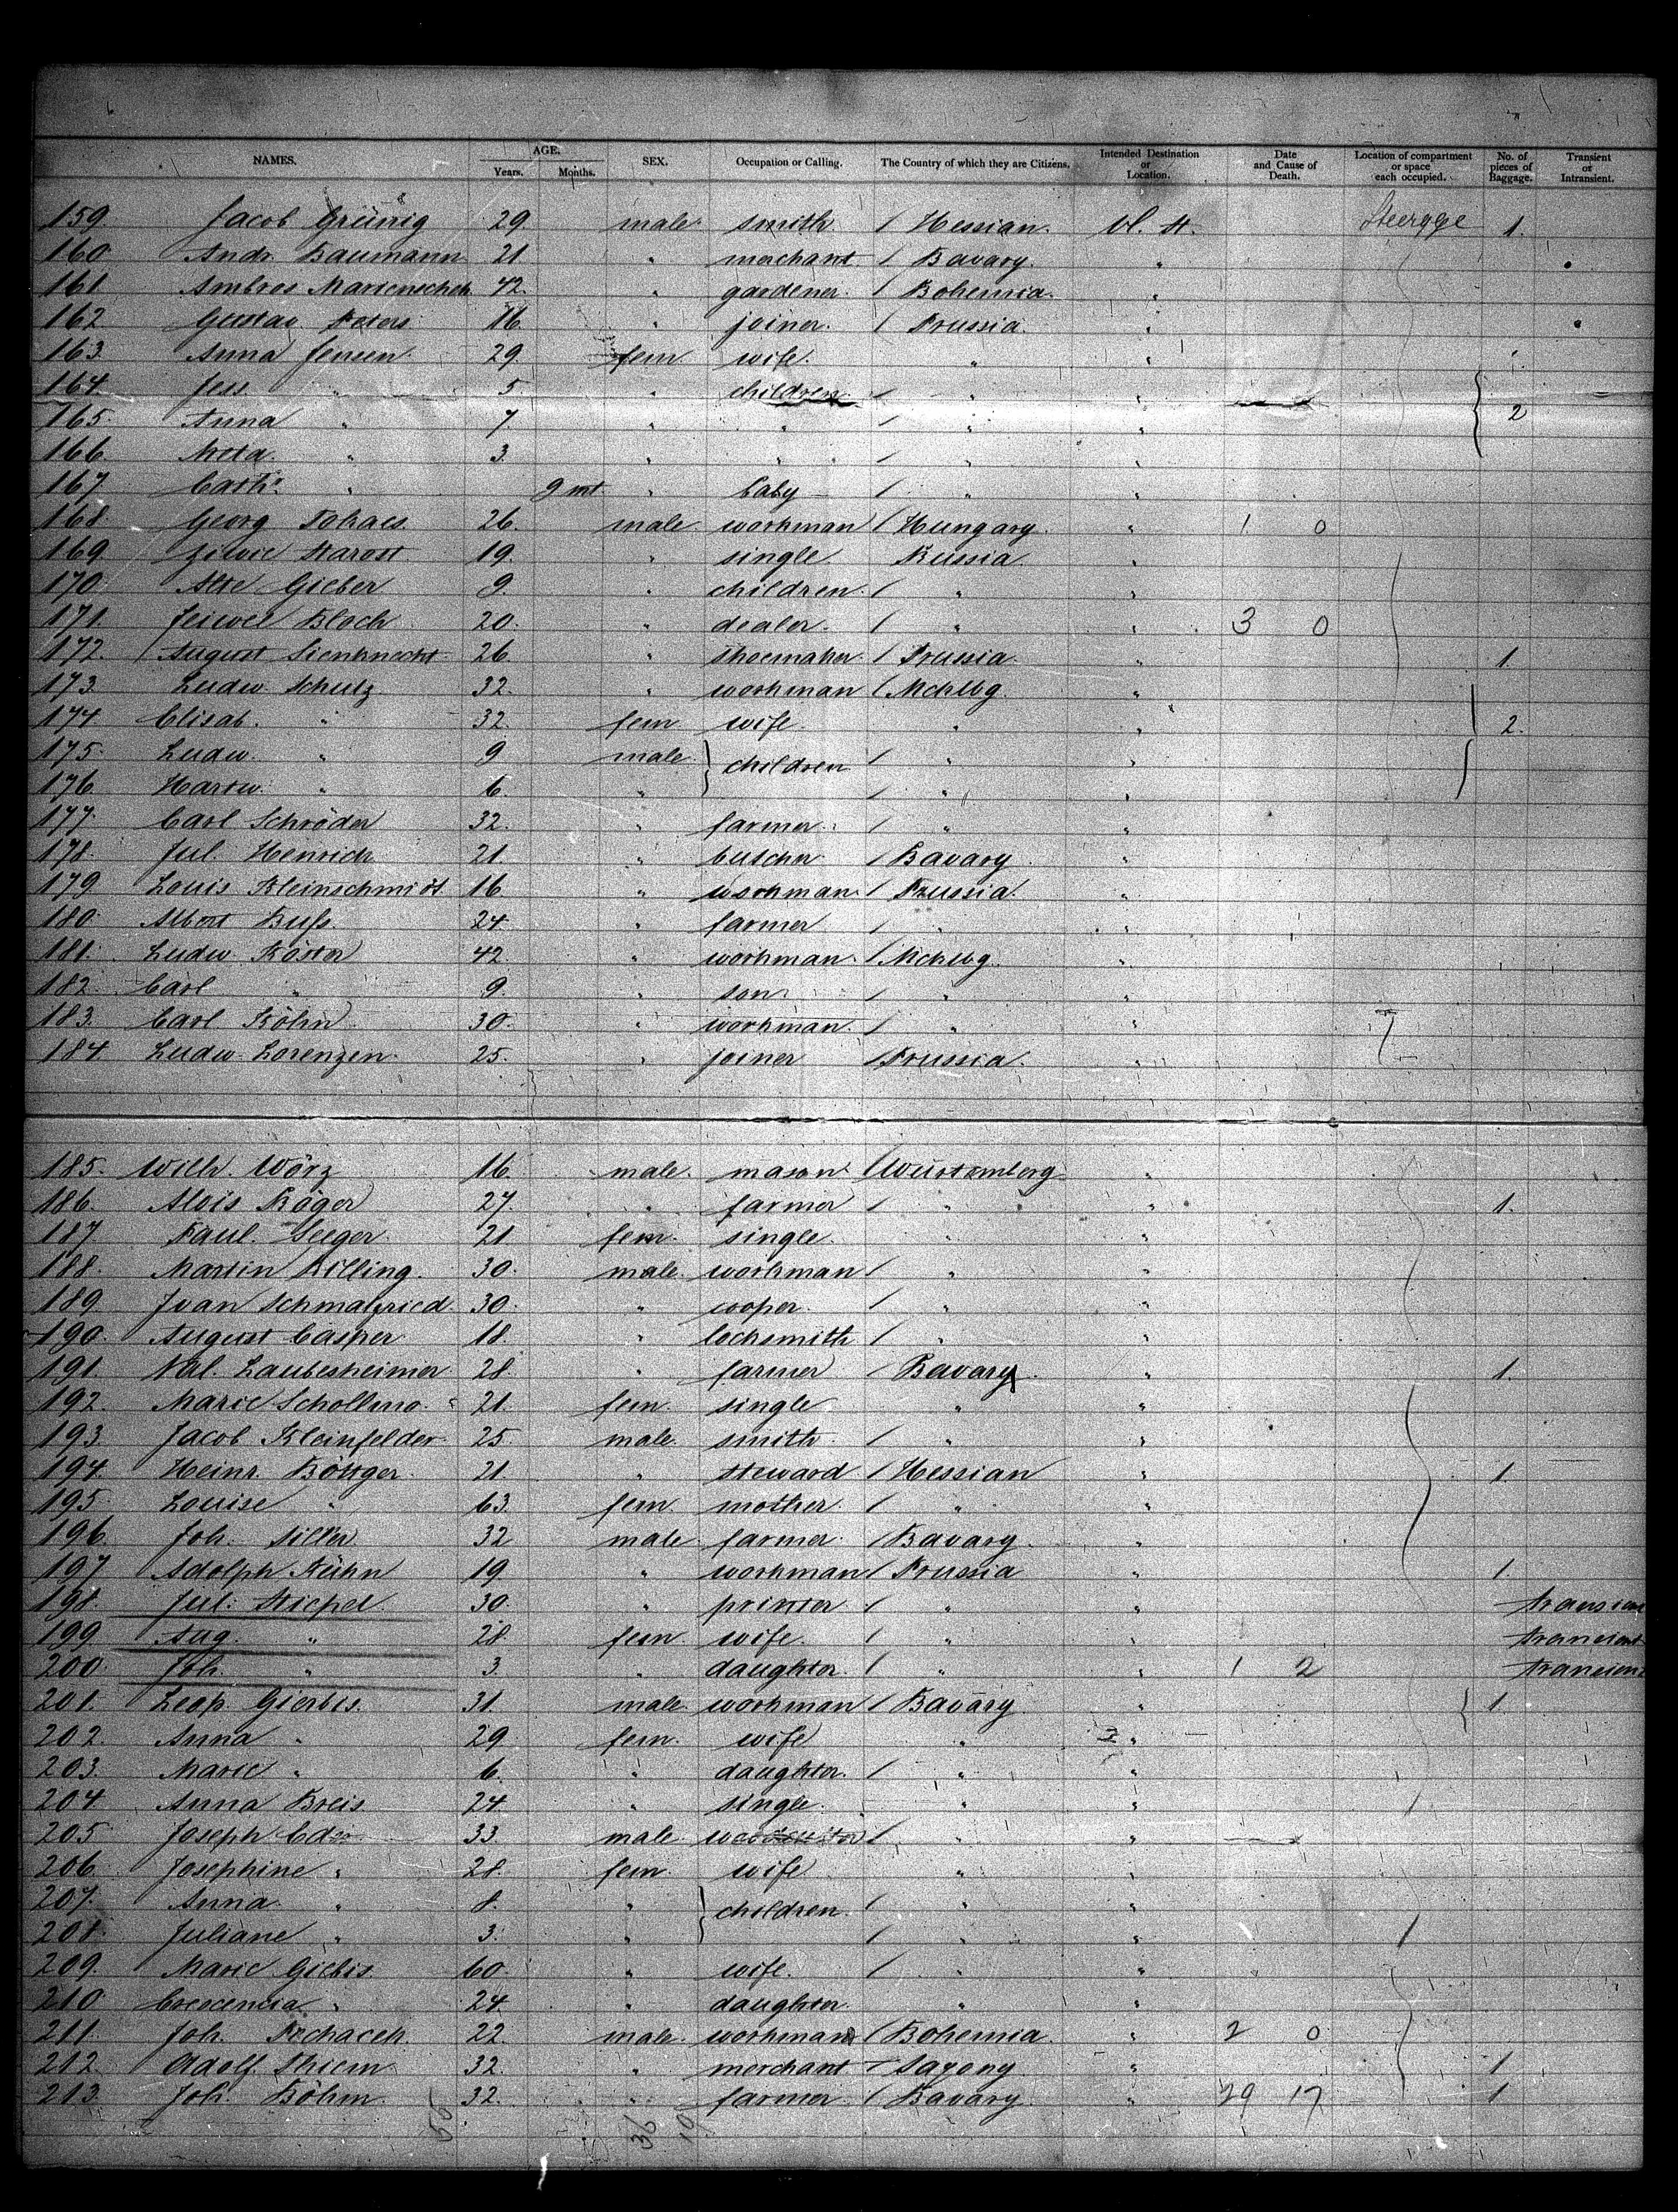 NAMES. AGE. Years. Months. SEX. Occupation or Calling. The Country of which they are Citizens. Intended Destination or Location. Date and Cause of Death. Location of compartment or space each occupied. No. of pieces of Baggage. Transient or Intransient.
159. Jacob Grünig 29. male smith / Hessian. U. St. Steerage 1.
160 Andr. Baumann 21 " merchant / Bavary. "
161 Ambros 42. " gardener. / Bohemia. "
162 Gustav Peters 16 " joiner. / Prussia. "
163 Anna Jensen 29. fem wife. " "
164. Jess " 5. " children / " "
165. Anna " 7 " " / " " 2
166. Meta " 3. " " / " "
167 Cath. " 9 mt. " baby / " "
168. Georg 26. male workman / Hungary. " 1 0
169. Starost 19. " single Russia "
170. Alte Gieber 9. " children. / " "
171. Bloch 20. " dealer. / " " 3 0
172. August Sienknecht 26 " shoemaker. / Prussia. " 1.
173. Ludw. Schulz 32. " workman / Mcklbg. "
174. Elisab. " 32. fem wife. " " 2.
175. Ludw. " 9 male } children / " "
176. Hartw. " 6. " / " "
177. Carl Schröder 32. " farmer. / " "
178. Jul. Henrich 21 " butcher / Bavary "
179. Louis Kleinschmidt 16. " workman. / Prussia. "
180. Albert Buss. 24. " farmer / " "
181. Ludw. Köster 42. " workman. / Mcklbg. "
182. Carl " 9. " son. / " "
183. Carl Köhn 30. " workman. / " "
184 Ludw. Lorenzen. 25. " joiner / Prussia. "
185. Wilh. Wörz 16. male. mason / Würtemberg "
186. Alois Röger 27. " farmer / " " 1.
187 Paul. Seeger. 21 fem. single. " "
188. Martin Killing. 30. male. workman / " "
189. Ivan Schmalzried 30. " cooper. / " "
190. August Casper 18. " locksmith / " "
191. Val. Laubesheimer 28. " farmer / Bavary. " 1.
192. Marie 21. fem. single " "
193. Jacob Kleinfelder 25. male. smith. / " "
194. Heinr. Böttger. 21. " steward / Hessian " 1
195. Louise " 63. fem. mother. / " "
196. Joh. Siller 32 male farmer. / Bavary. "
197 Adolph Kühn 19. " workman / Prussia " 1.
198. Jul. Stiepel 30. " printer / " " transient
199 Aug. " 28. fem. wife. / " " transient
200. Joh. " 3. " daughter. / " " 1 2 transient
201. Leop. 31. male. workman / Bavary " 1.
202. Anna " 29. fem. wife " "
203. Marie " 6. " daughter. / " "
204. Anna Breis 24. " single. " "
205 Joseph 33. male. / " "
206. Josephine " 28. fem. wife " "
207. Anna. " 8. " } children. / " "
208. Juliane " 3. " / " "
209. Marie 60. " wife. / " "
210. Crescencia " 24. " daughter. " "
211. Joh. 22. male. workman / Bohemia. " 2 0
212. Adolf Thiem 32. " merchant / Saxony " 1
213. Joh. Böhm. 32. " farmer. / Bavary. " 29 17 1
55 36 19